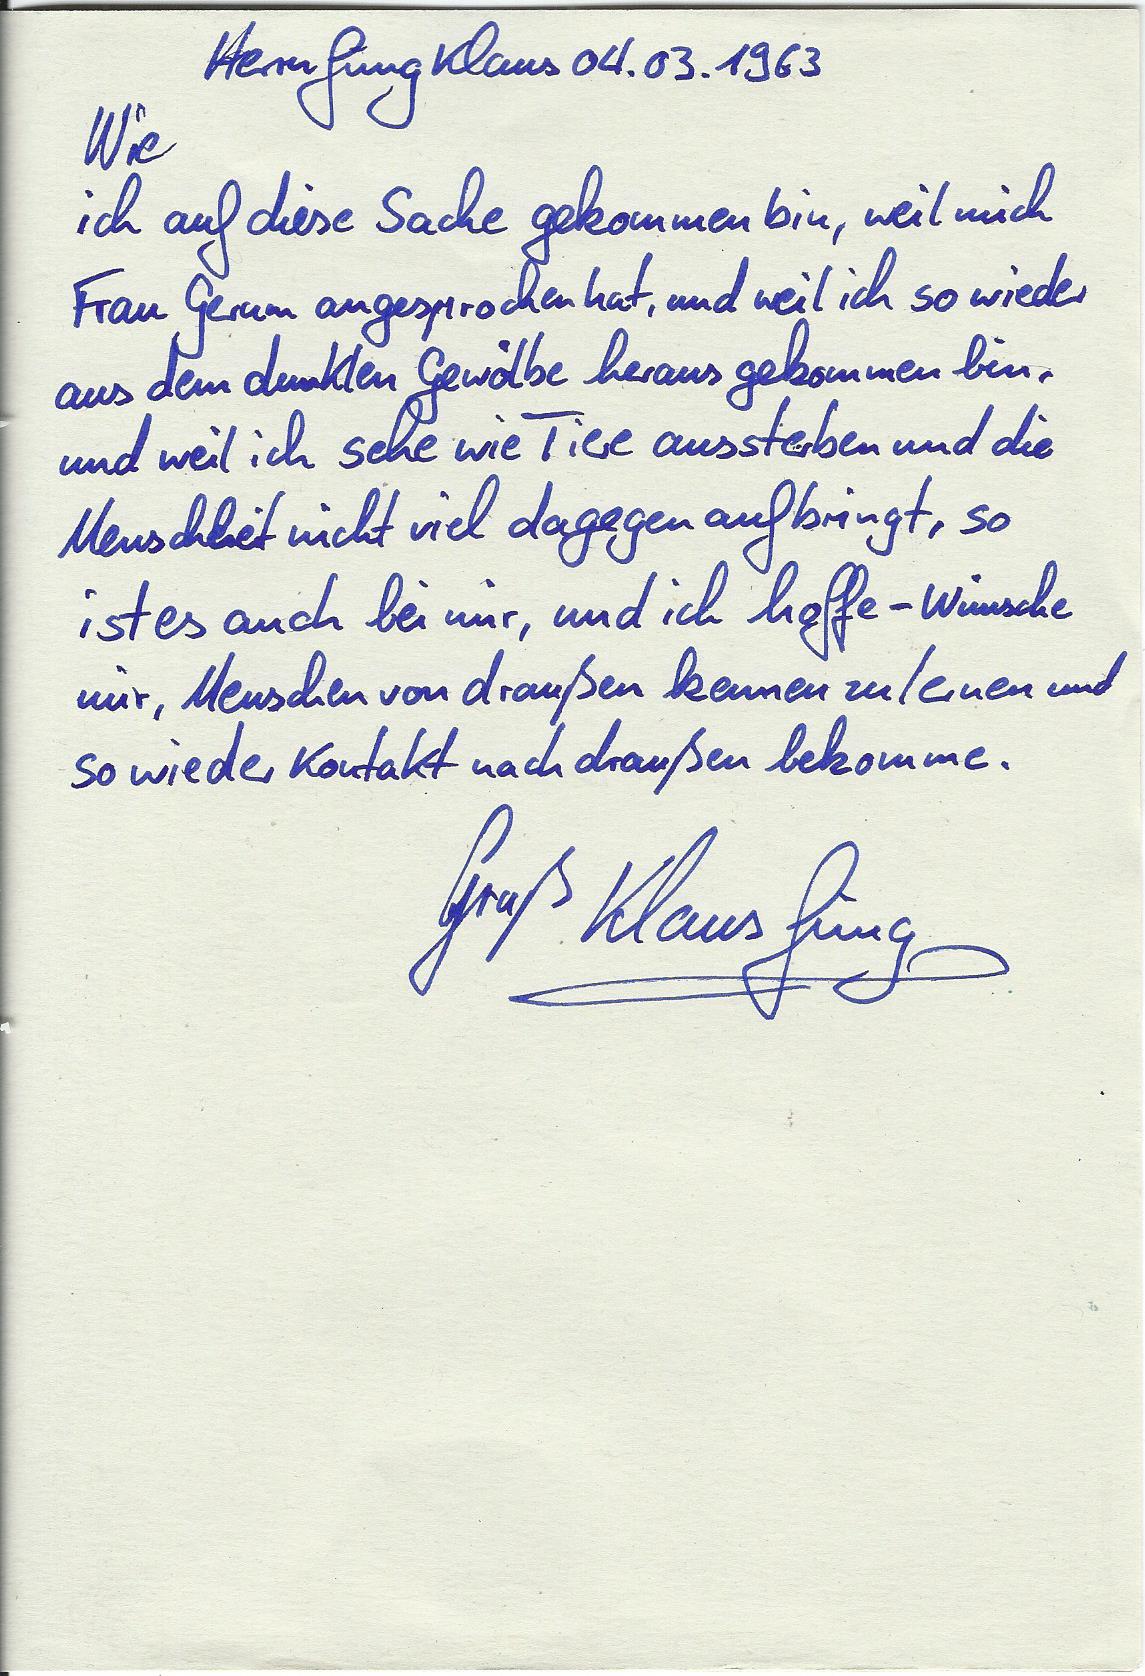 Herrn Jung Klaus 04.03.1963
Wie
ich auf diese Sache gekommen bin, weil mich
Frau Gerum angesprochen hat, und weil ich so wieder
aus dem dunklen Gewölbe heraus gekommen bin.
und weil ich sehe wie Tiere aussterben und die
Menschheit nicht viel dagegen aufbringt, so
ist es auch bei mir, und ich hoffe - Wünsche
mir, Menschen von draußen kennen zu lernen und
so wieder Kontakt nach draußen bekomme.
Gruß Klaus Jung